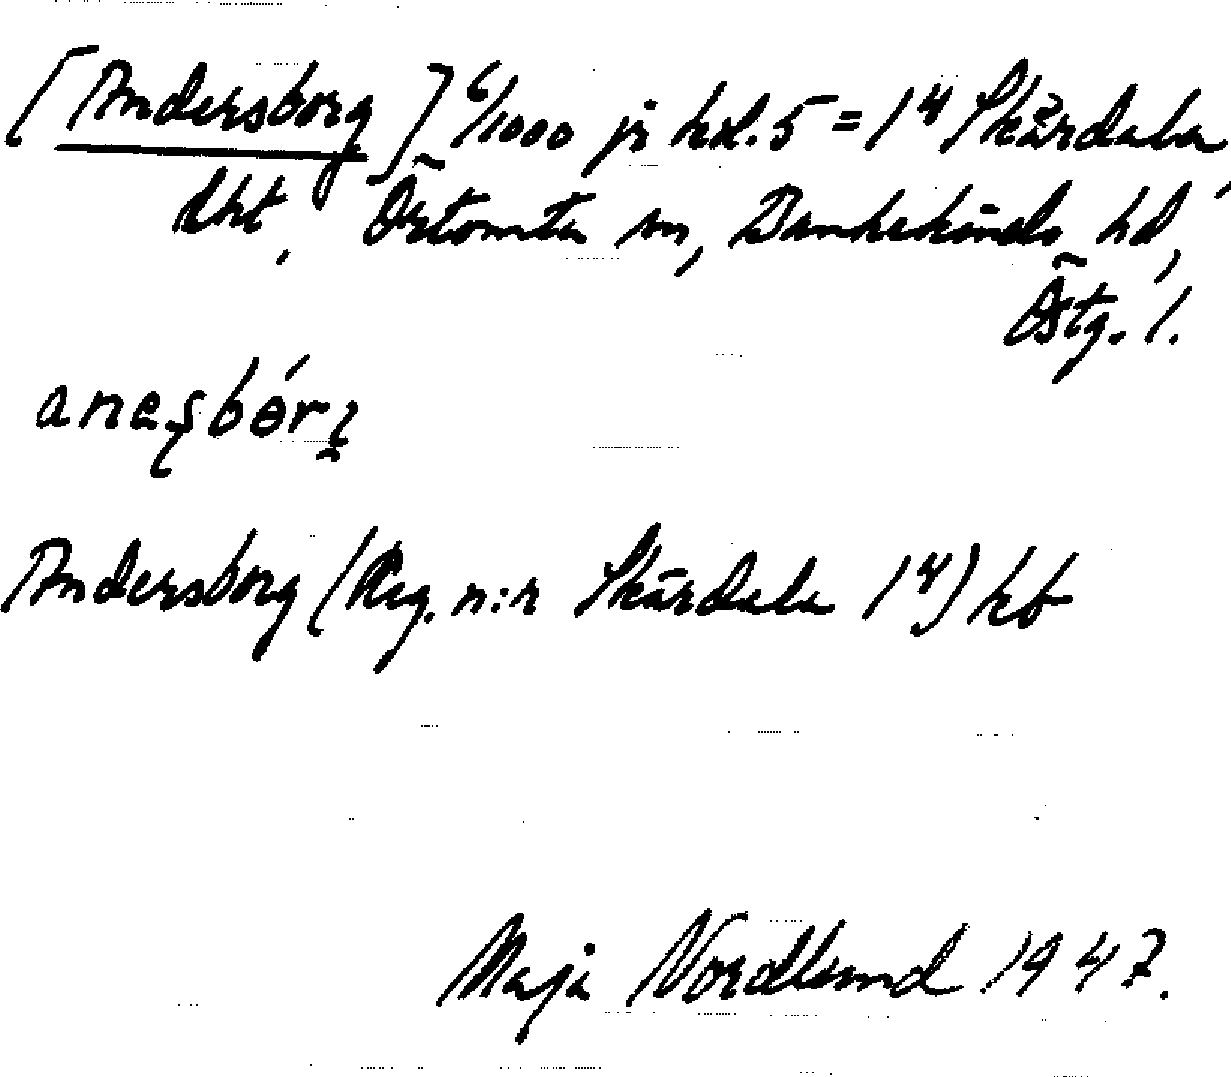 [Andersborg] 6/1000 jr hd. 5 = 1⁴ Skärdala,
lht, Östomta sn, Bankekinds hd,
Östg. l.
Andersborg (Reg. n:r Skärdala 1⁴) hb
Maja Nordlund 1947.